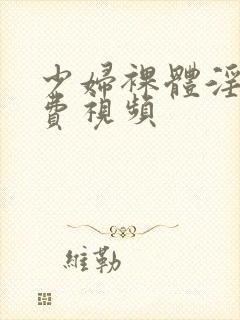 少婦裸體淫
費視頻
維勒